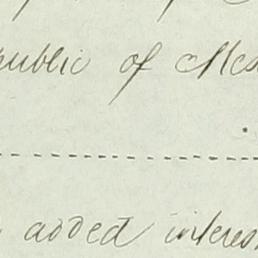 public of Mex
added interes